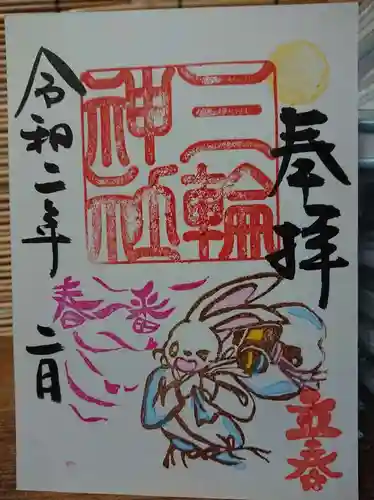 奉拝
三輪
神社
令和二年
二日
春一番
立春